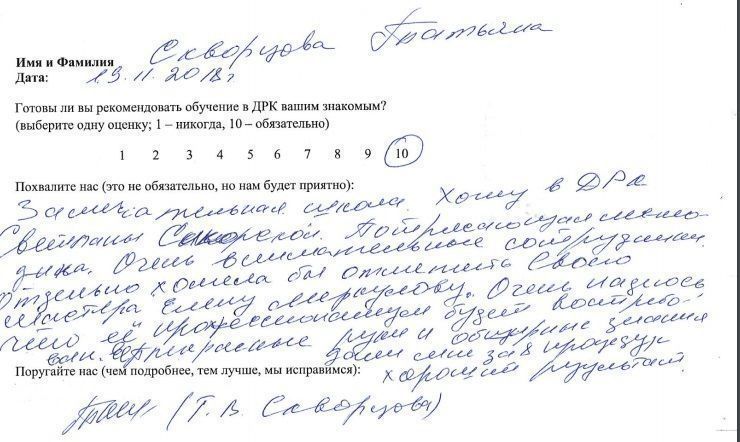 Имя и Фамилия Скворцова Татьяна
Дата: 19.11.2018г
Готовы ли вы рекомендовать обучение в ДРК вашим знакомым?
(выберите одну оценку; 1 – никогда, 10 – обязательно)
1 2 3 4 5 6 7 8 9 10
Похвалите нас (это не обязательно, но нам будет приятно):
Замечательная школа. Хожу в ДРК
Светланы Потрясающая мето-
дика. Очень внимательные сотрудники.
Отдельно хотела бы отметить своего
мастера Елену Меркулову. Очень надеюсь
что её профессионализм будет востребо-
ван. Прекрасные руки и обширные знания
дали мне за 8 процедур
Поругайте нас (чем подробнее, тем лучше, мы исправимся):
хороший результат.
(Т. В. Скворцова)